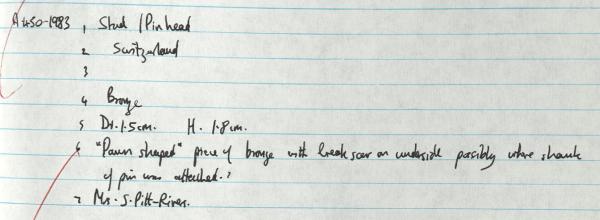 A450-1983 1 Stud / Pinhead
2 Switzerland
3
4 Bronze
5 Di. 1.5cm. H. 1.8cm.
6 "Pawn shaped" piece of bronze with break scar on underside possibly where shank
of pin was attached.?
7 Mrs. S. Pitt-Rivers.